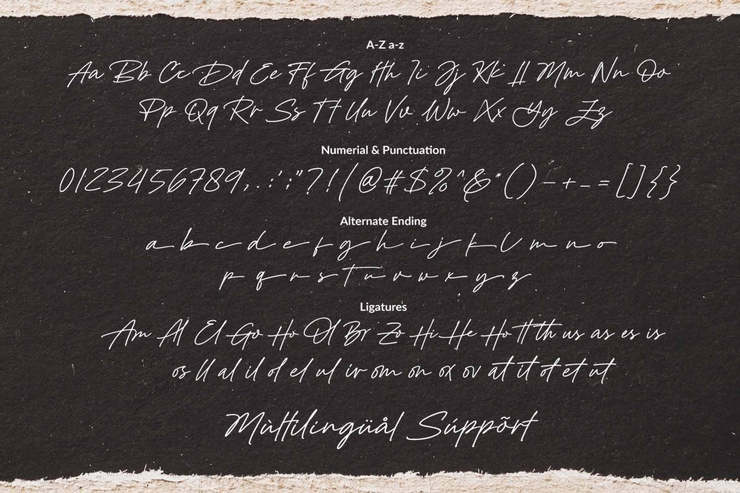 A-Z a-z
Aa Bb Cc Dd Ee Ff Gg Hh Ii Jj Kk Ll Mm Nn Oo
Pp Qq Rr Ss Tt Uu Vv Ww Xx Yy Zz
Numerial & Punctuation
0123456789,.:';"?!/@#$%^&*()-+_=[]{}
Alternate Ending
a b c d e f g h i j k l m n o
p q r s t u v w x y z
Ligatures
Am Al El Go Ho Ol Br Zo Hi He Ho tt th us as es is
os ll al il ol el ul ir om on ox ov at it ot et ut
Mùltilingüål Súppõrt